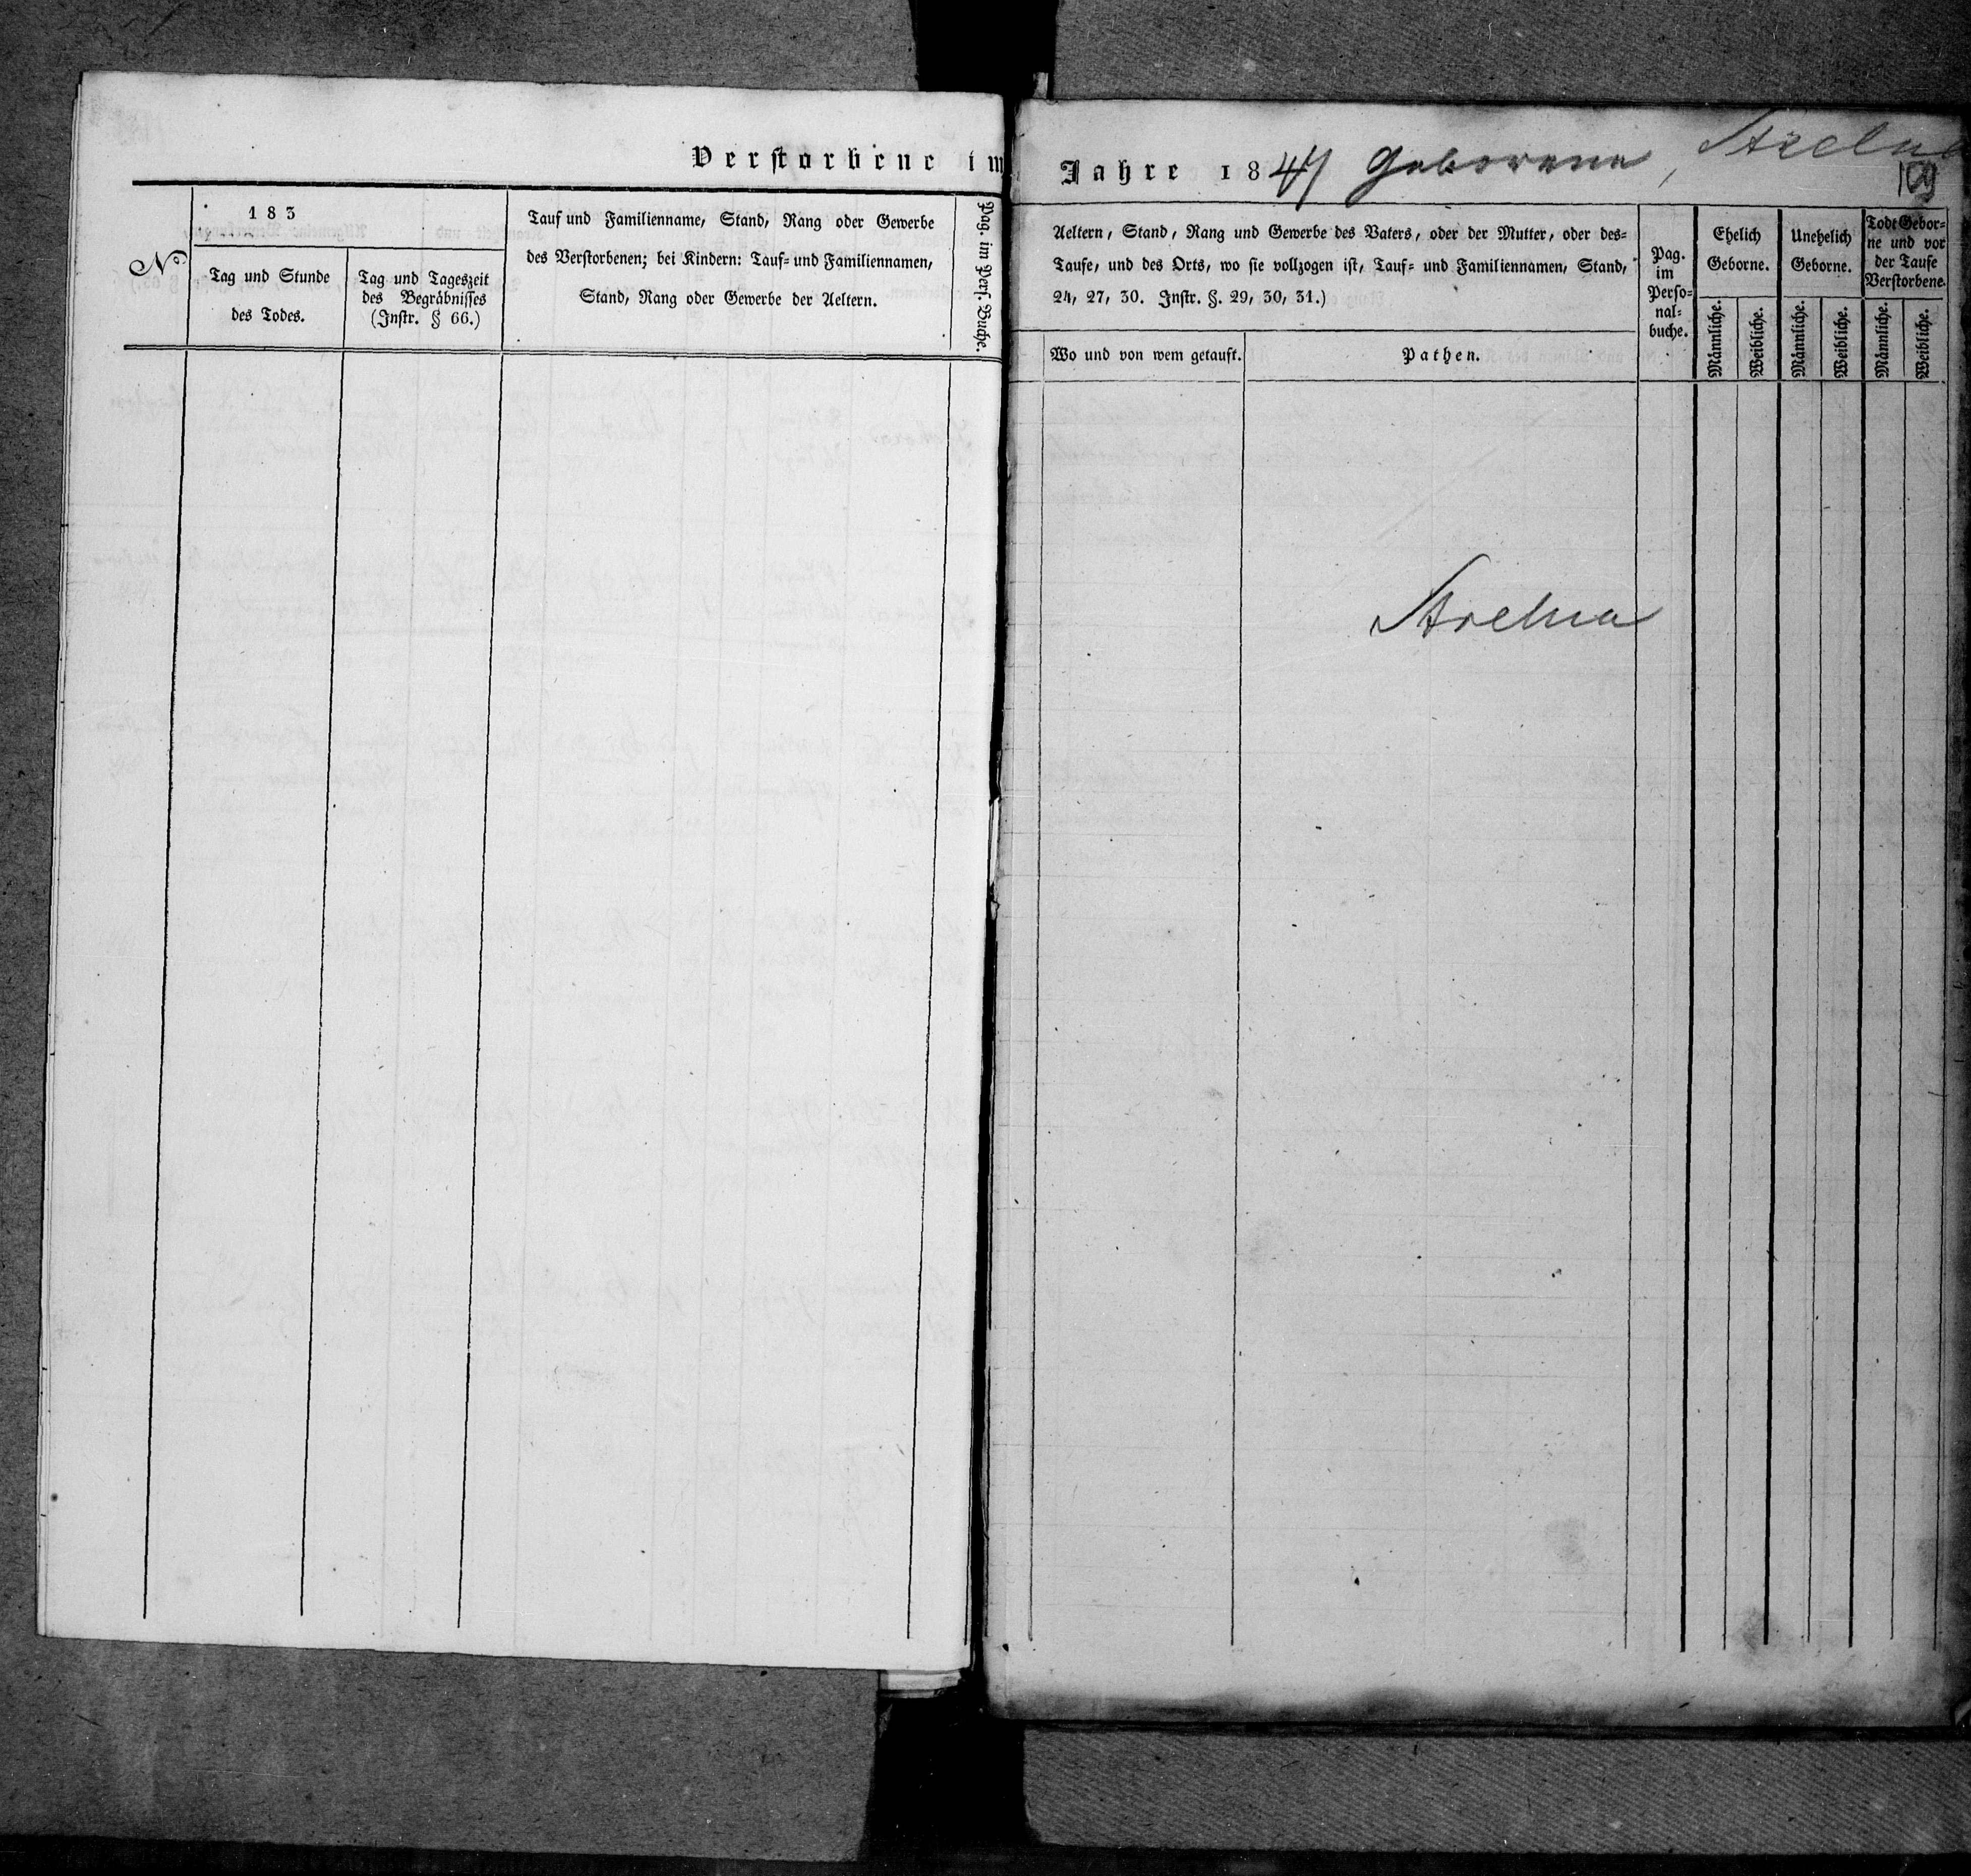 Verstorbene im
№
183
Tag und Stunde
des Todes.
Tag und Tageszeit
des Begräbnisses
(Instr. § 66.)
Tauf und Familienname, Stand, Rang oder Gewerbe
des Verstorbenen; bei Kindern: Tauf- und Familiennamen,
Stand, Rang oder Gewerbe der Aeltern.
Pag. im Pers. Buche.
Jahre 1847 Geborene, Strelna
109
Aeltern, Stand, Rang und Gewerbe des Vaters, oder der Mutter, oder des-
Taufe, und des Orts, wo sie vollzogen ist, Tauf- und Familiennamen, Stand,
24, 27, 30. Instr. §. 29, 30, 31.)
Wo und von wem getauft.
Pathen.
Pag.
im
Perso-
nal-
buche.
Ehelich
Geborne.
Männliche.
Weibliche.
Unehelich
Geborne.
Männliche.
Weibliche.
Todt Gebor-
ne und vor
der Taufe
Verstorbene.
Männliche.
Weibliche.
Strelna